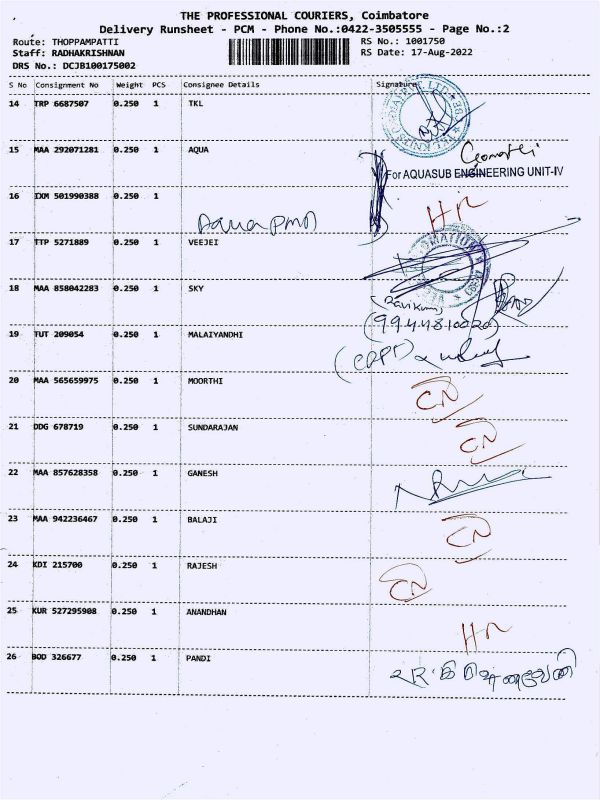 THE PROFESSIONAL COURIERS, Coimbatore
Delivery Runsheet - PCM - Phone No.:0422-3505555 - Page No.:2
Route: THOPPAMPATTI RS No.: 1001750
Staff: RADHAKRISHNAN RS Date: 17-Aug-2022
DRS No.: DCJB100175002
S No Consignment No Weight PCS Consignee Details Signature
14 TRP 6687507 0.250 1 TKL
15 MAA 292071281 0.250 1 AQUA
For AQUASUB ENGINEERING UNIT-IV
16 IXM 501990388 0.250 1 HR
17 TTP 5271889 0.250 1 VEEJEI
18 MAA 858042283 0.250 1 SKY
19 TUT 209054 0.250 1 MALAIYANDHI
20 MAA 565659975 0.250 1 MOORTHI
21 DDG 678719 0.250 1 SUNDARAJAN
22 MAA 857628358 0.250 1 GANESH
23 MAA 942236467 0.250 1 BALAJI
24 KDI 215700 0.250 1 RAJESH
25 KUR 527295908 0.250 1 ANANDHAN
26 BOD 326677 0.250 1 PANDI